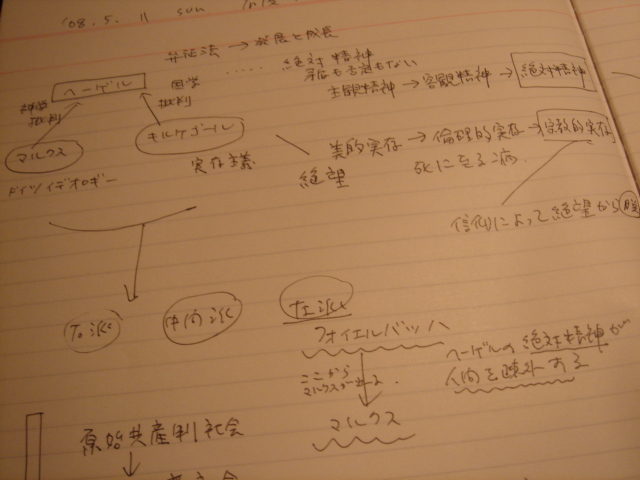 '08. 5. 11 sun
弁証法 → 発展と成長
絶対精神
矛盾も言過もない
ヘーゲル
神学批判
国学批判
主観精神 → 客観精神 → 絶対精神
マルクス
キルケゴール
美的実存 → 倫理的実存 → 宗教的実存
実存主義
絶望
死に至る病
ドイツイデオロギー
信仰によって絶望から
右派
中間派
左派
フォイエルバッハ
ヘーゲルの絶対精神が
人間を疎外する
ここから
マルクス
原始共産制社会